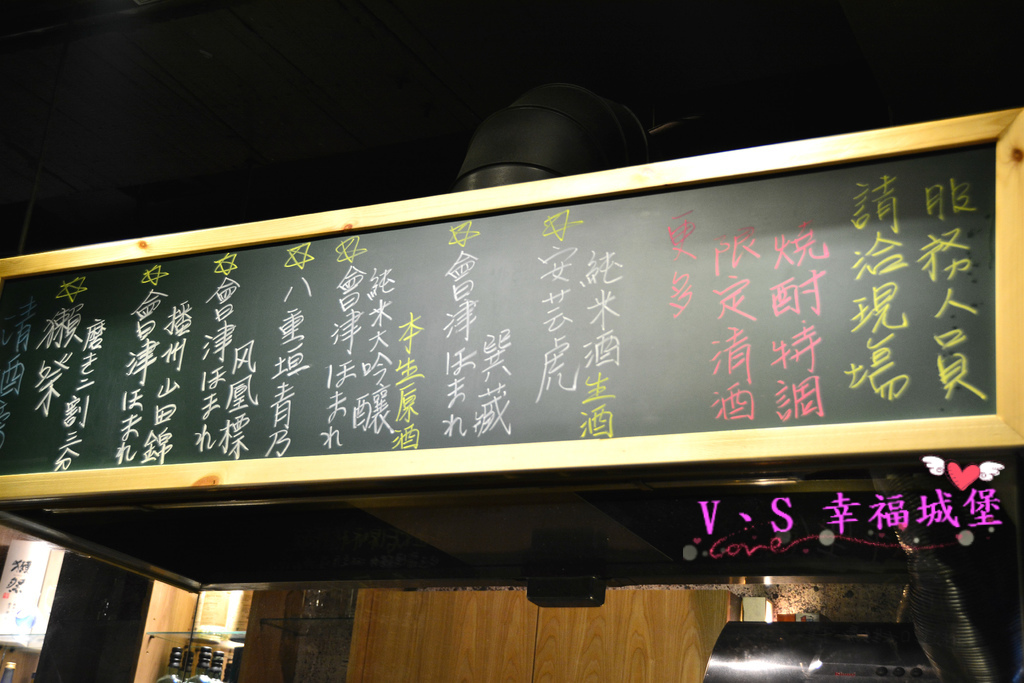 清酒
獺祭
磨き二割三分
會津ほまれ
播州山田錦
會津ほまれ
风凰標
八重垣青乃
會津ほまれ
純米大吟釀
本生原酒
會津ほまれ
巽藏
安芸虎
純米酒生酒
更多
限定清酒
燒酎特調
請洽現場
服務人員
V、S 幸福城堡
Love
獺祭